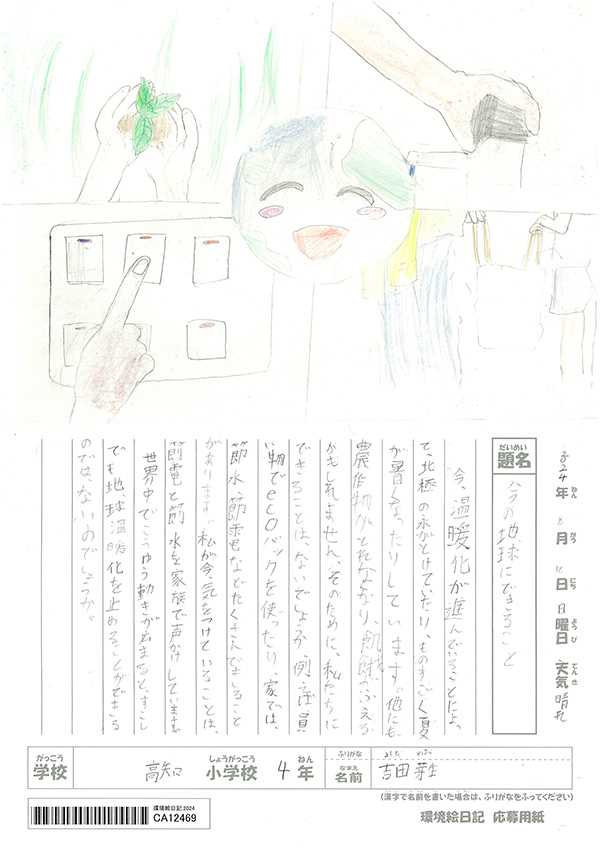 2024年 8月 18日 日曜日 天気 晴れ
ねん がつ にち ようび てんき
だいめい
題名
今の地球にできること
今、温暖化が進んでいることによっ
て、北極の氷がとけていたり、ものすごく夏
が暑くなったりしています。他にも
農作物がとれなくなり、飢餓がふえる
かもしれません。そのために、私たちに
できることは、ないでしょうか。例えば、買
い物でecoバックを使ったり、家では、
節水、節電などたくさんできること
があります。私が今、気をつけていることは、
節電と節水を家族で声かけしています。
世界中でこうゆう動きが広まると、すこし
でも地球温暖化を止めることができる
のでは、ないのでしょうか。
がっこう しょうがっこう ねん ふりがな よしだ
学校 小学校 4年 なまえ 名前 吉田 芽生
(漢字で名前を書いた場合は、ふりがなをふってください)
環境絵日記 応募用紙
環境絵日記2024
CA12469